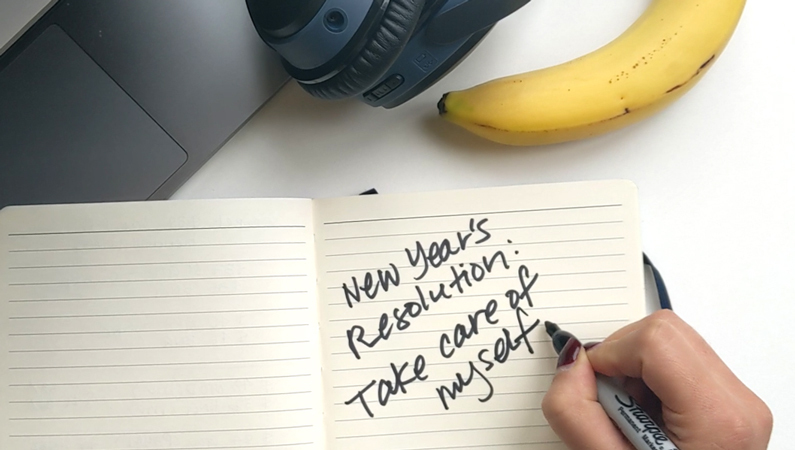 New Year's
Resolution:
Take care of
myself
Sharpie
Permanent Marker